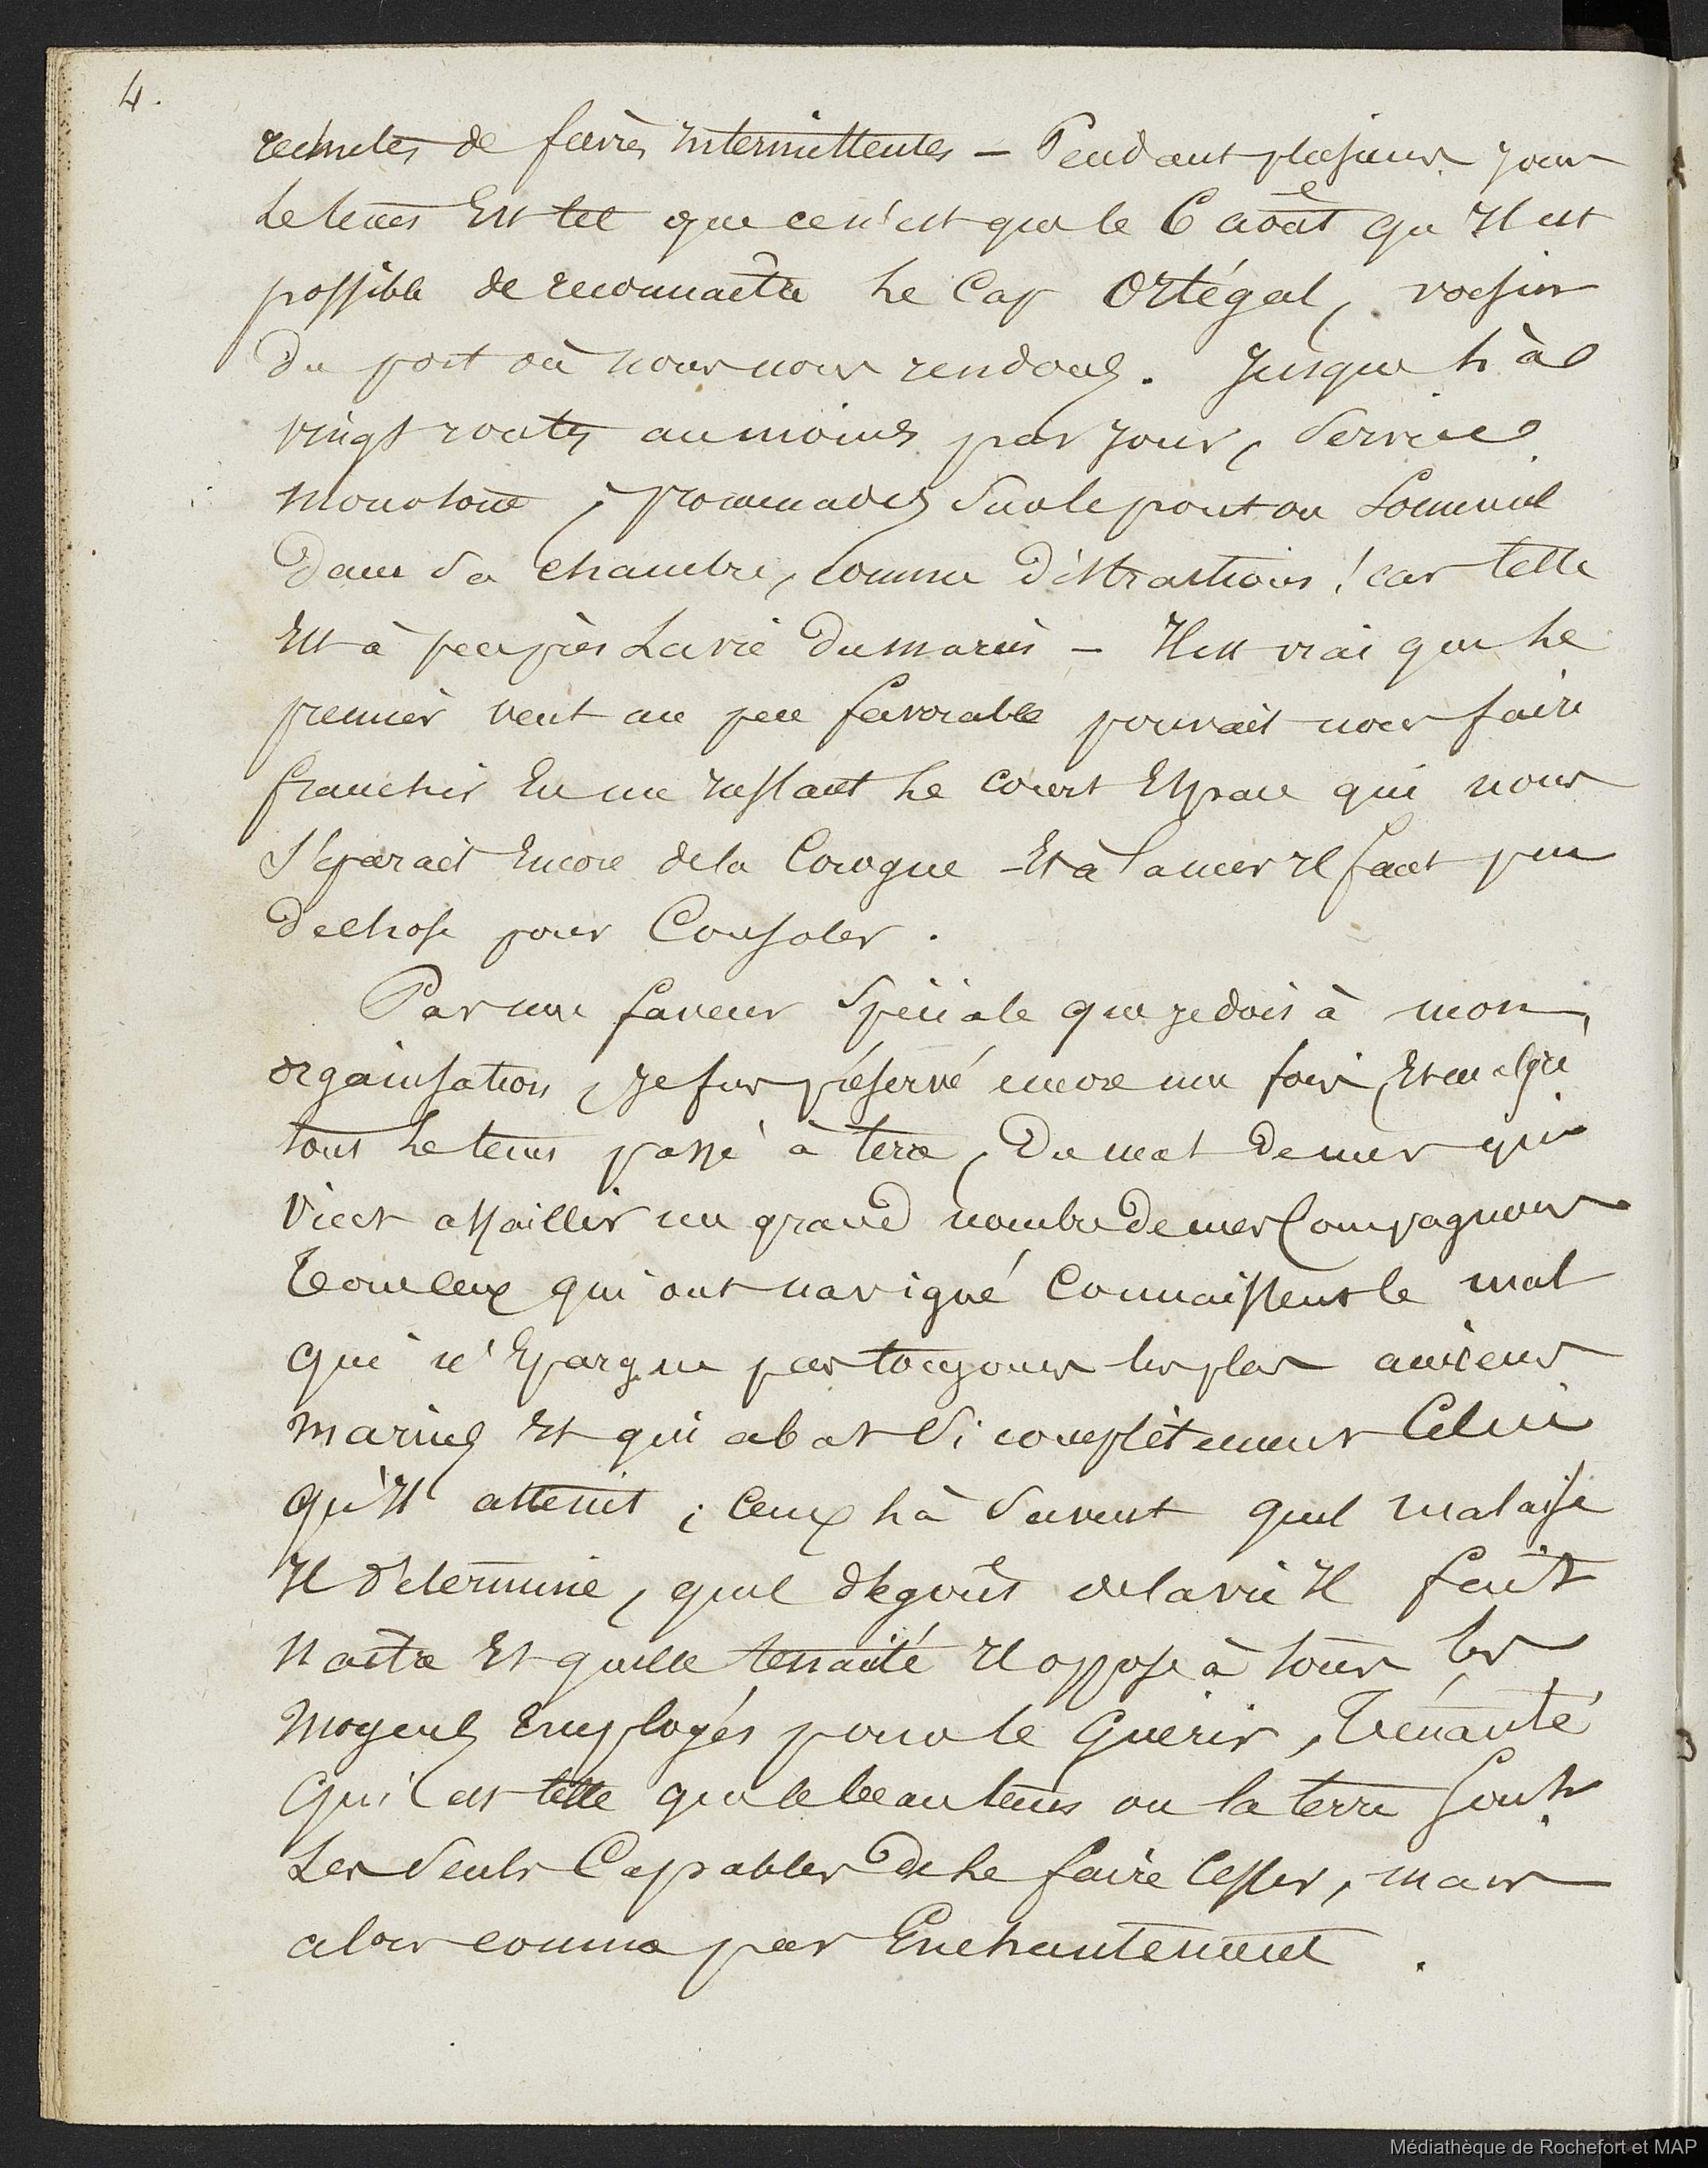 4.
rechutes de fièvres intermittentes – Pendant plusieurs jours
le tems est tel que ce n'est que le 6 août qu'il est
possible de reconnaître le Cap Ortégal, voisin
du port où nous nous rendons. Jusque là
vingt routes au moins par jour, service
monotone, promenades sur le pont ou sommeil
dans sa chambre, comme distractions ! car telle
est à peu près la vie du marin – Il est vrai que le
premier vent un peu favorable pouvait nous faire
franchir en un instant le court espace qui nous
séparait encore de la Corogne – et à la mer il faut peu
de chose pour consoler.
Par une faveur spéciale que je dois à mon
organisation, je fus préservé encore une fois, et malgré
tout le tems passé à terre, du mal de mer qui
vient assaillir un grand nombre de mes compagnons
Tous ceux qui ont navigué connaissent le mal
qui n'épargne pas toujours les plus anciens
marins et qui abat si complètement celui
qu'il atteint ; ceux là savent quel malaise
il détermine, quel dégoût de la vie il fait
naître et quelle tenacité il oppose à tous les
moyens employés pour le guérir, ténacité
qui est telle que le beau tems ou la terre sont
les seuls capables de le faire cesser, mais
alors comme par enchantement.
Médiathèque de Rochefort et MAP